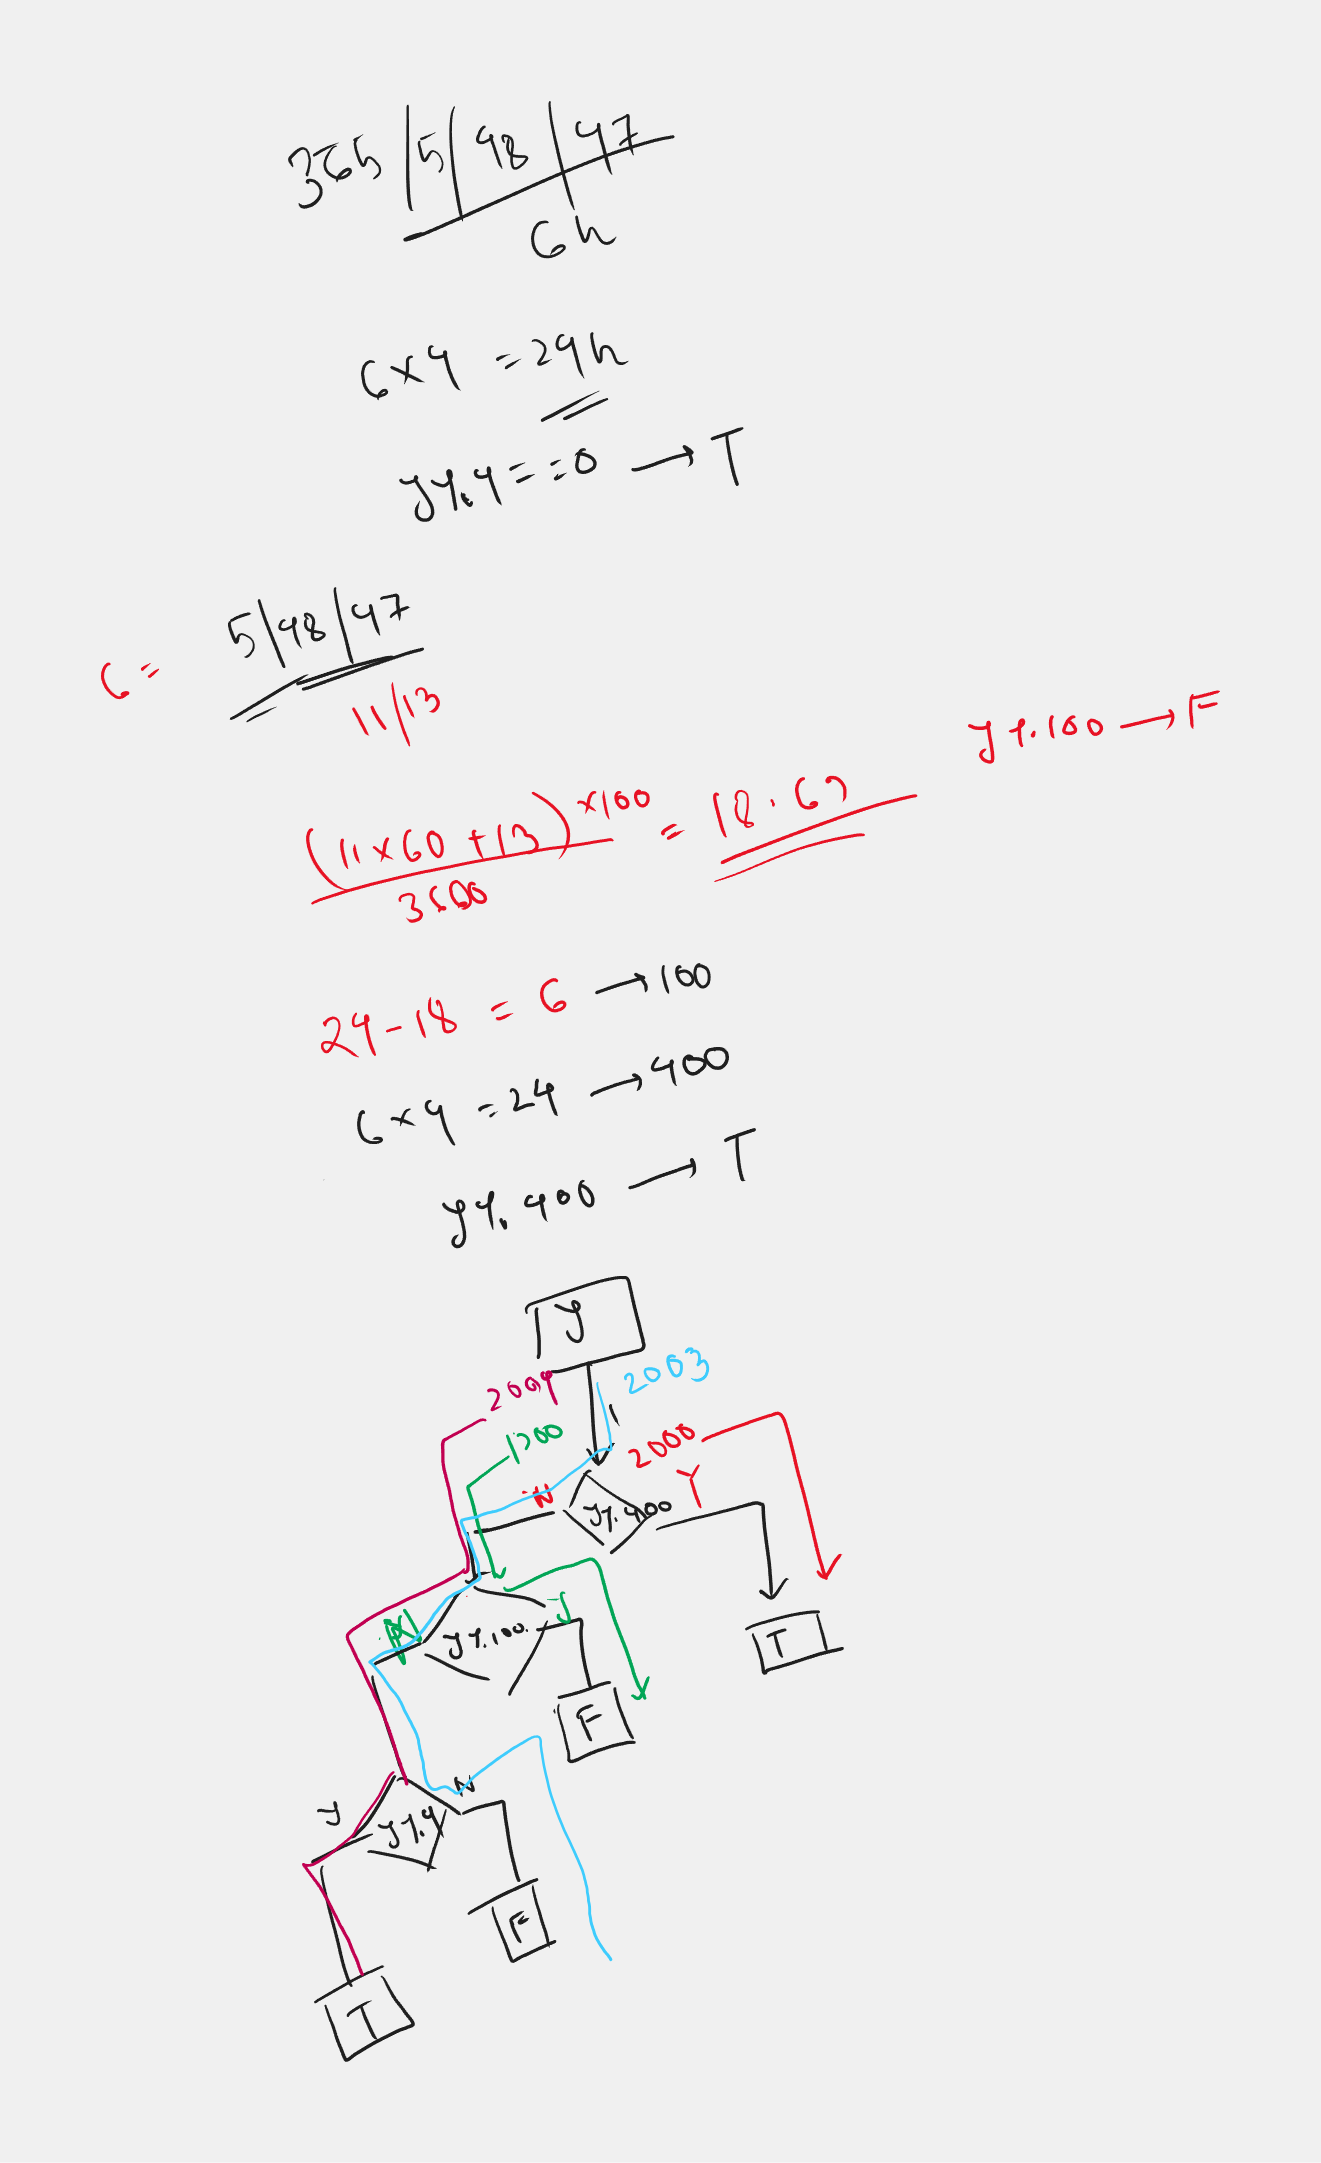 365 | 5 | 48 | 47
6h
6 x 4 = 24h
y % 4 == 0 → T
5 | 48 | 47
6 =
11/13
y % 100 → F
(11 x 60 + 13) x 100 = 18.6
3600
24 - 18 = 6 → 100
6 x 4 = 24 → 400
y % 400 → T
y
2003
2004
1700
2000
N
y % 400
Y
N
y % 100
y
T
F
y
y % 4
N
F
T